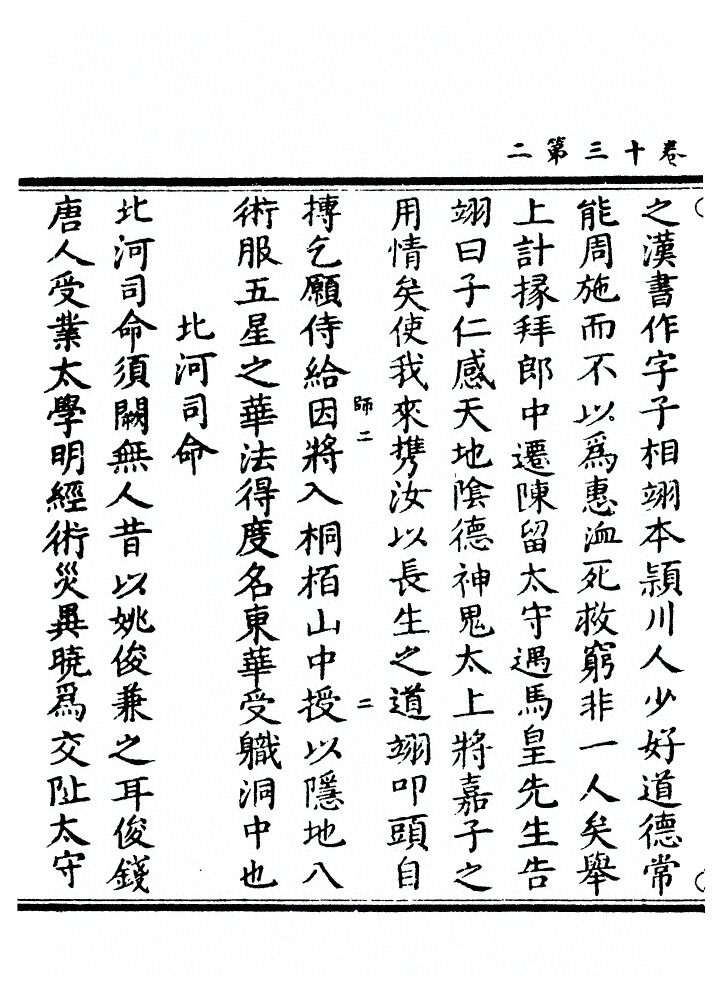 卷十三第二
之漢書作字子相翊本潁川人少好道德常
能周施而不以爲惠䘏死救窮非一人矣舉
上計掾拜郎中遷陳留太守遇馬皇先生告
翊曰子仁感天地陰德神鬼太上將嘉子之
用情矣使我來携汝以長生之道翊叩頭自
師二 二
摶乞願侍給因將入桐栢山中授以隱地八
術服五星之華法得度名東華受職洞中也
北河司命
北河司命須闕無人昔以姚俊兼之耳俊錢
唐人受業太學明經術災異曉爲交阯太守